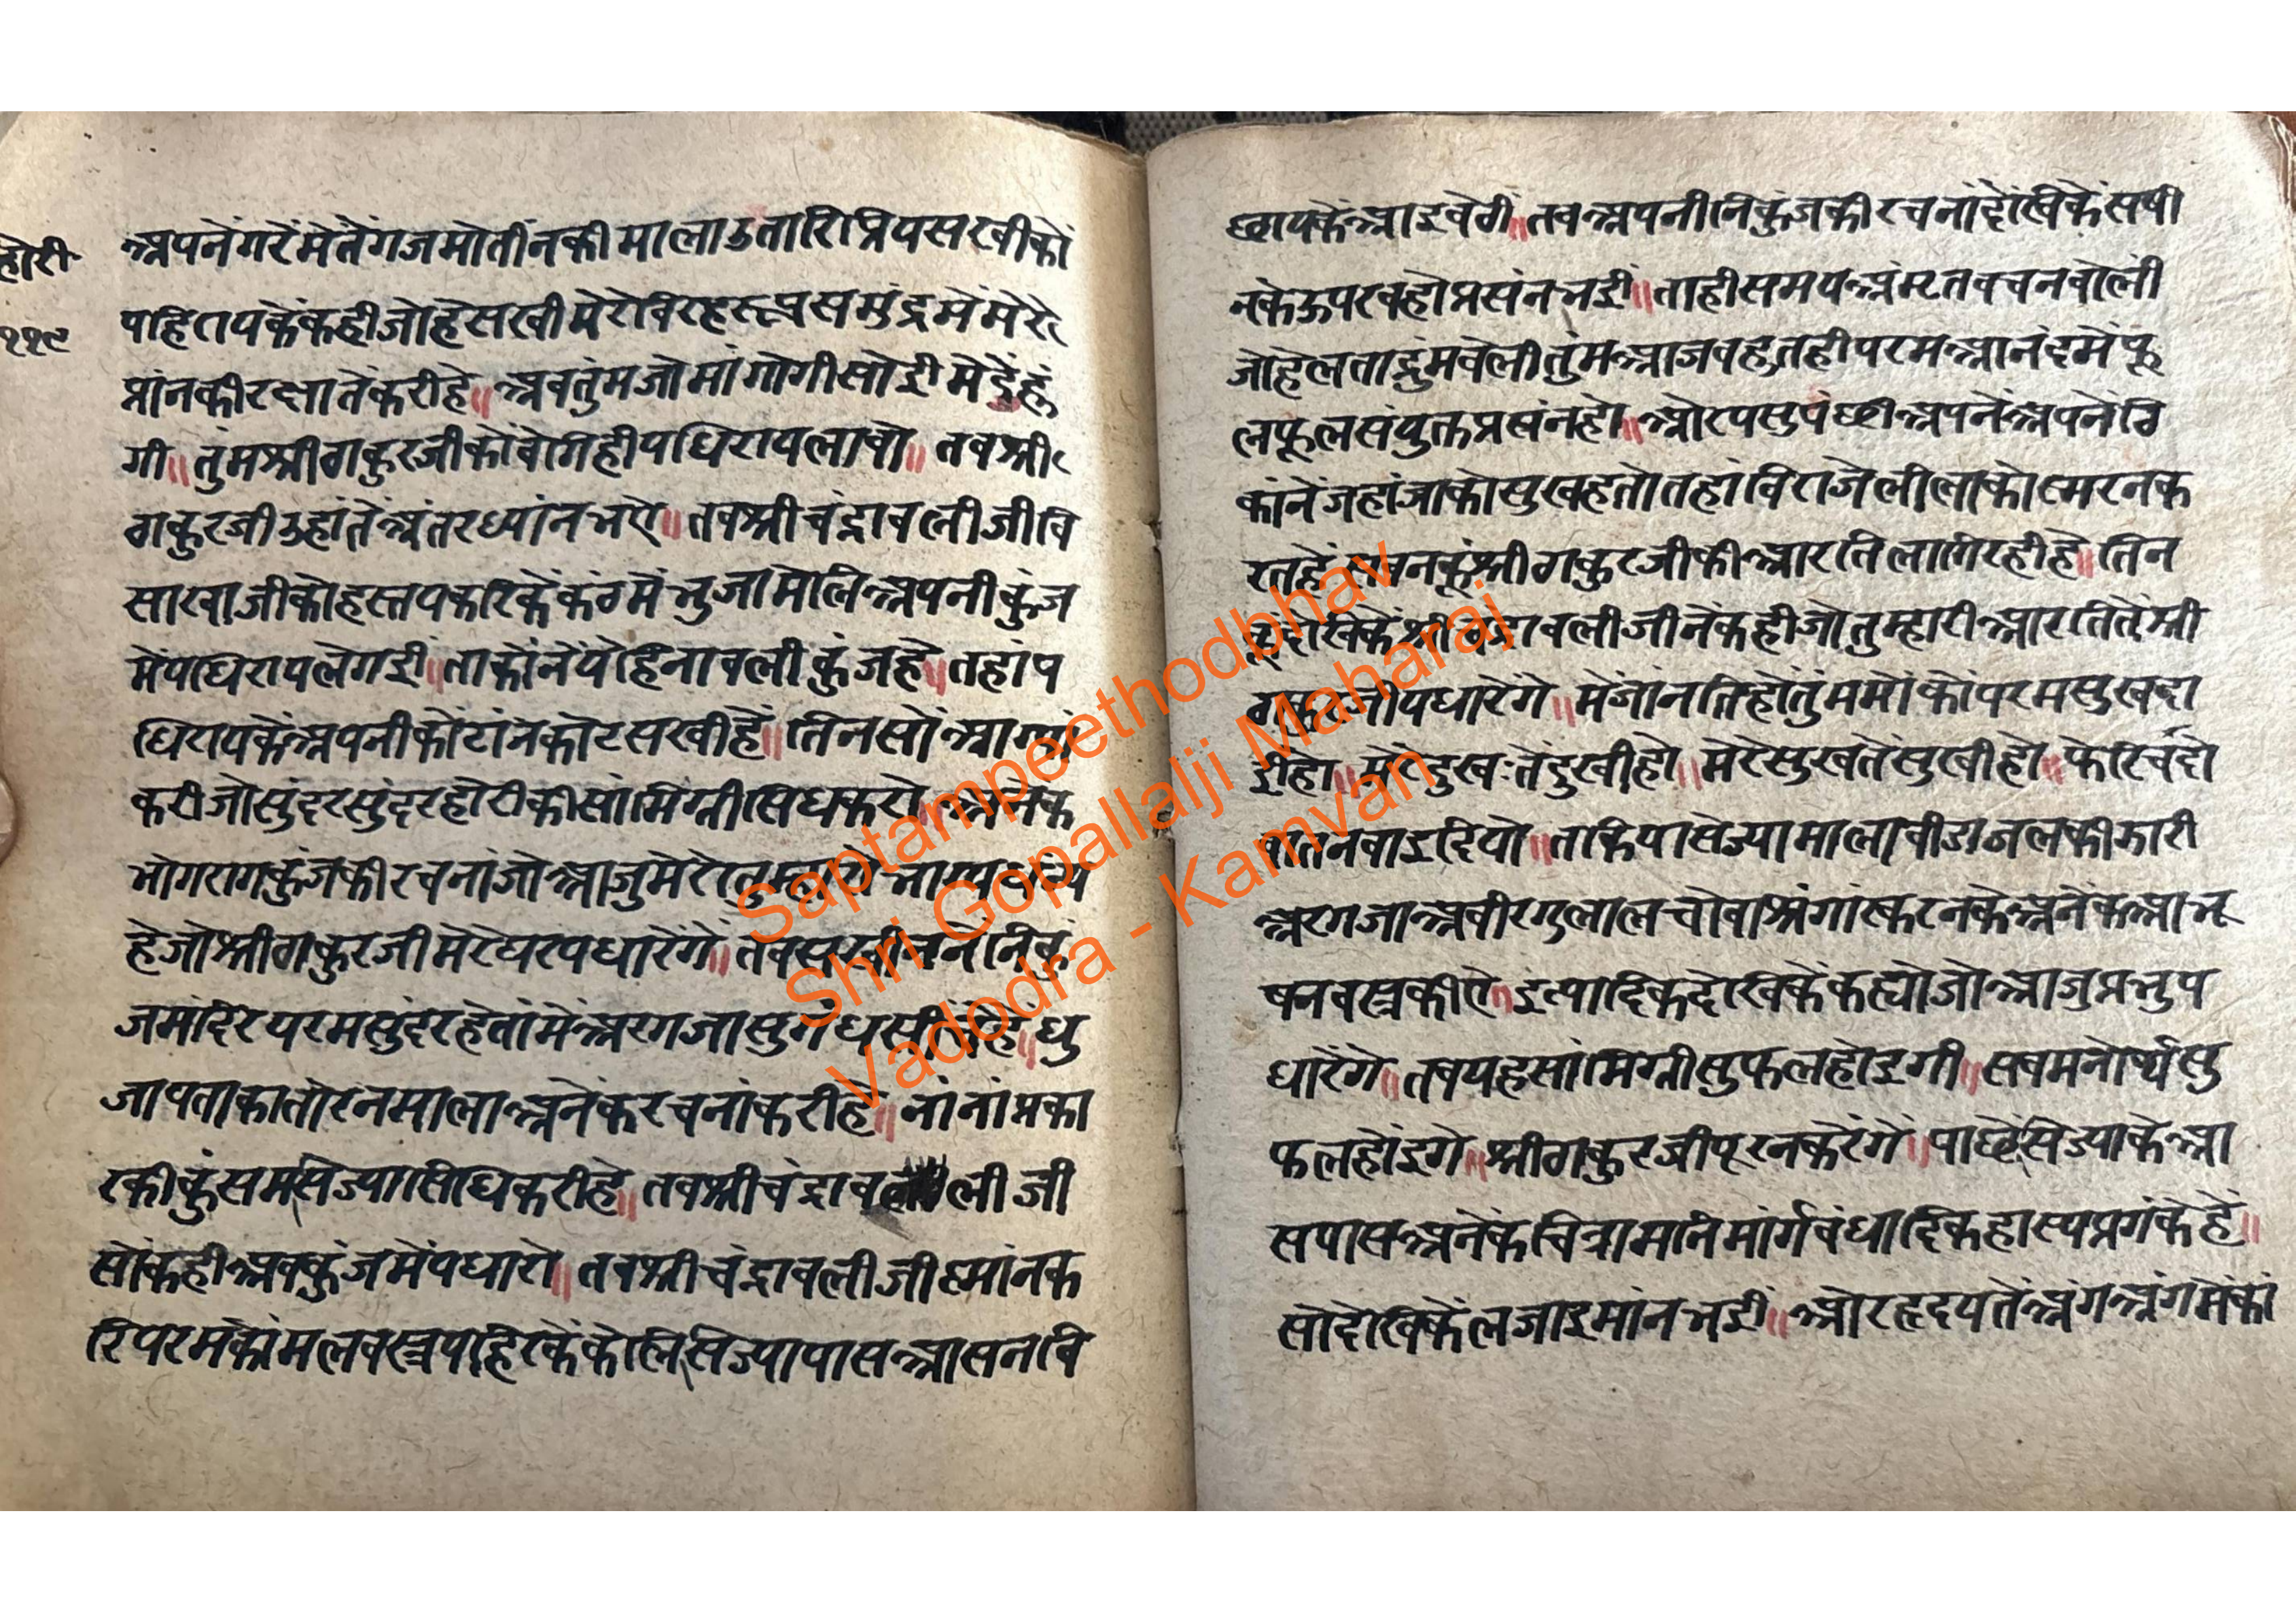 होरी
११९
अपनेंगरेंमेतेंगजमोतींनकीमालाउतारिप्रियसखीकों
पहिरायकेंकहीजोहेसखीमेरोविरहरूपसमुंद्रमेंमेरे
प्रांनकीरक्षातेंकरीहे॥ अबतुंमजोमांगोगीसोईमेंदेंहूं
गी॥ तुंमश्रीठाकुरजीकोंबेगिहीपधिरायलावो॥ तबश्री
ठाकुरजीउहांतेंअंतरध्यांनभऐ॥ तबश्रीचंद्रावलीजीवि
साखाजीकोहस्तपकरिकेंकंठमेंभुजामेलिअपनीकुंज
मेंपधिरायलेगई॥ ताकोंनेंपेंहिनावलीकुंजहे॥ तहांप
धिरायकेंअपनीकोटांनकोटसखीहें॥ तिनसोंआग्या
करीजोसुंदरसुंदरहोरीकीसांमिग्रीसिधकरो॥ अनेक
भोगरागकुंजकीरचनांजोआजुमेरे
हेजोश्रीठाकुरजीमेरेघरपधारेंगें॥ तबसखीजननिकुं
जमंदिरपरमसुंदरहेतांमेंअरगजासुगंध धु
जापताकातोरनमालाअनेंकरचनांकरीहे॥ नांनांप्रका
रकीकुंसमसिज्यासिधिकरीहे॥ तबश्रीचंद्रावलीजी
सोंकहीअबकुंजमेंपधारो॥ तबश्रीचंद्रावलीजीस्मांनक
रिपरमकोंमलवस्त्रपहिरकेंकेलिसिज्यापासआसनबि
छायकेंआइबेठी॥ तबअपनीनिकुंजकीरचनांदेखिकेंसषी
नकेऊपरबहोप्रसंनभई॥ ताहीसमयअंमृतवचनबोली
जोहेलताद्रुंमबेलीतुंमआजबहुतहीपरमआनंदमेंफू
लफूलसंयुक्तप्रसंनहो॥ ओरपसुपंछीअपनेंअपनेंठि
कांनेंजहांजाकोसुखहतोतहांविराजेलीलाकोस्मरनक
रतहेंसबनकूंश्रीठाकुरजीकीआरतिलागिरहीहे॥ तिन
कूंदेखिकेंश्रीचंद्रावलीजीनेंकहीजोतुम्हारीआरतितेंश्री
ठाकुरजीपधारेंगे॥ मेंजांनतिहोंतुंममोंकोंपरमसुखदा
ईहो॥ मेरेदुखःतेंदुखीहो॥ मेरेसुखतेंसुखीहो॥ फेरिचंदो
वातनवाइदियो॥ ताकेपासेज्यामालाबीडाजलकीझारी
अरगजाअबीरगुलालचोवाश्रंगारकरनकेअनेंकआभू
षनवस्त्रकीऐ॥ इत्यादिकदेखिकेंकह्योजोआजुप्रभुप
धारेंगे॥ तबयहसांमिग्रीसुफलहोइगी॥ सबमनोर्थसु
फलहोंइगे॥ श्रीठाकुरजीपूरनकरेंगें॥ पाछेंसिज्याकेआ
सपासअनेंकचित्रामांनिमांर्गबंधादिकहास्यप्रगंकेहें॥
सोदेखिकेंलजाइमांनभई॥ ओरहृदयतेंअंगअंगमेंकां
Saptampeethodbhav
Shri Gopallalji Maharaj
Vadodra - Kamvan